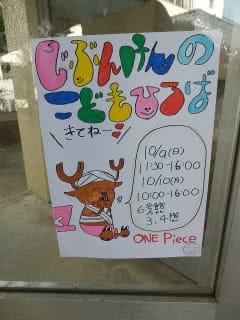 じぶんけんの
こどもひろば
きてねー
10/9(日)
11:30-16:00
10/10(月)
10:00-16:00
6号館
3.4階
ONE PIECE